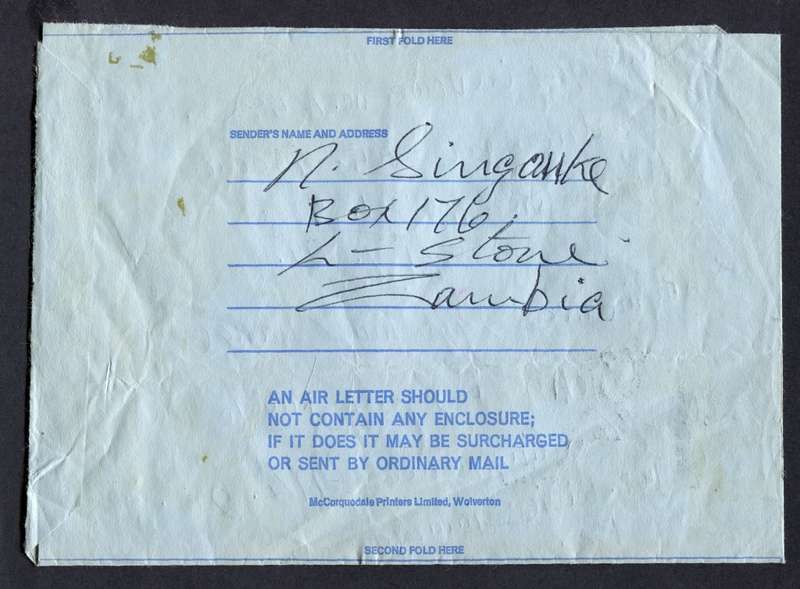 FIRST FOLD HERE
SENDER'S NAME AND ADDRESS
N. Singanke
Box 176.
L - Stone
Zambia
AN AIR LETTER SHOULD
NOT CONTAIN ANY ENCLOSURE;
IF IT DOES IT MAY BE SURCHARGED
OR SENT BY ORDINARY MAIL
McCorquodale Printers Limited, Wolverton
SECOND FOLD HERE